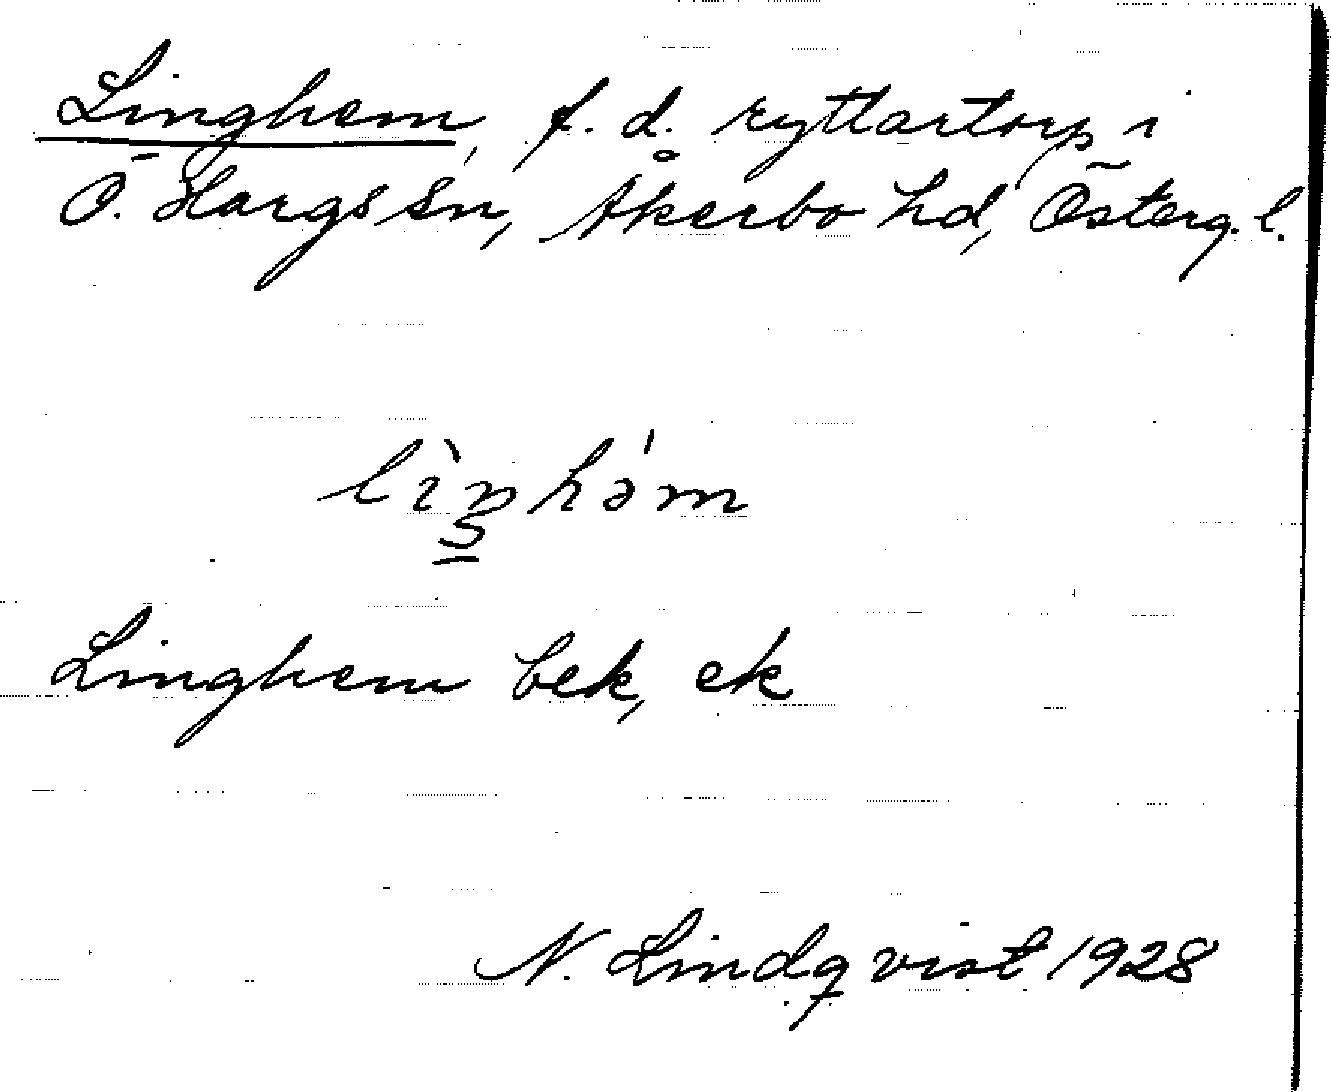 Linghem, f. d. ryttartorp i
Ö. Hargs sn, Åkerbo hd, Österg. l.
Linghem bek, ek
N. Lindqvist 1928